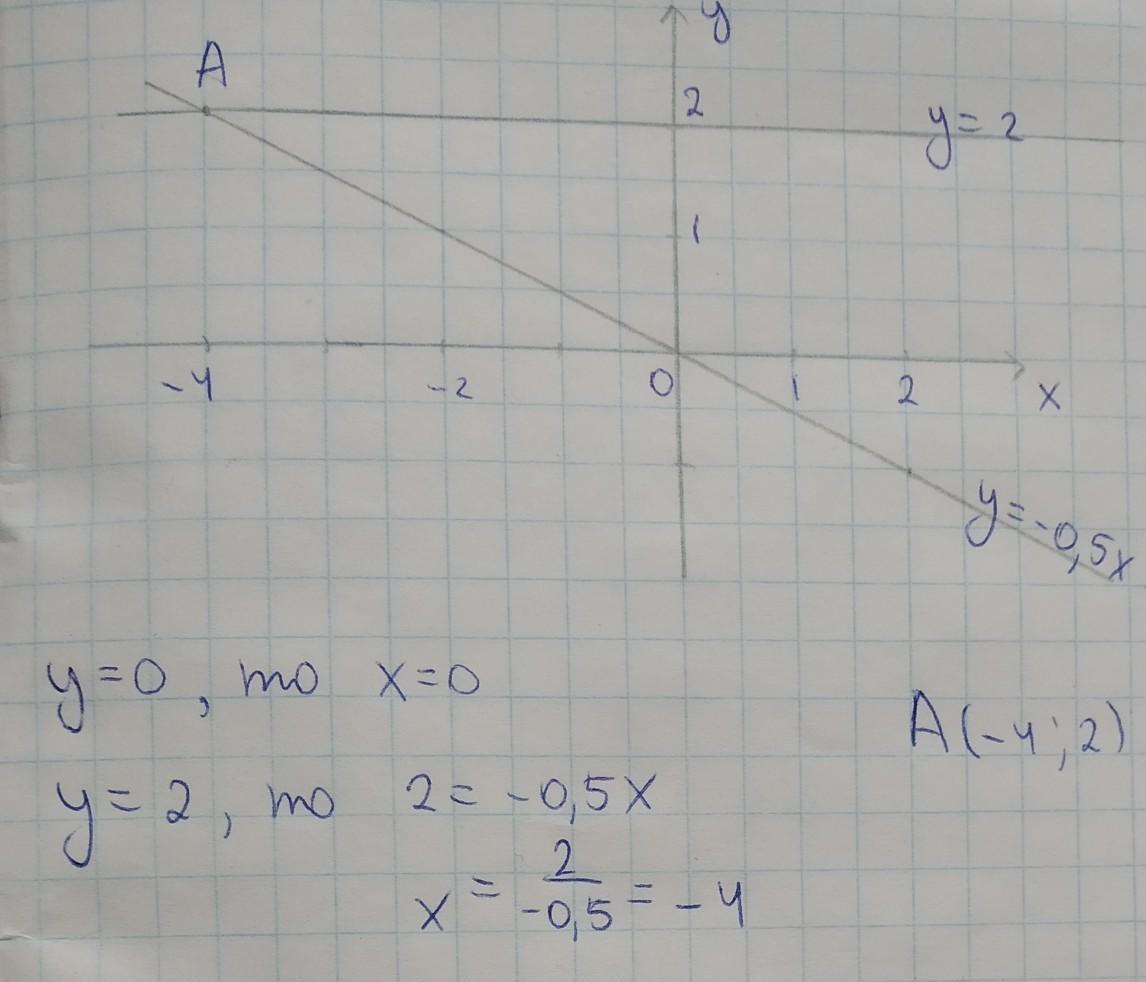 A
y
2
y = 2
1
-4 -2 0 1 2 x
y = -0,5x
y = 0, то x = 0
A(-4; 2)
y = 2, то 2 = -0,5x
x = 2/-0,5 = -4